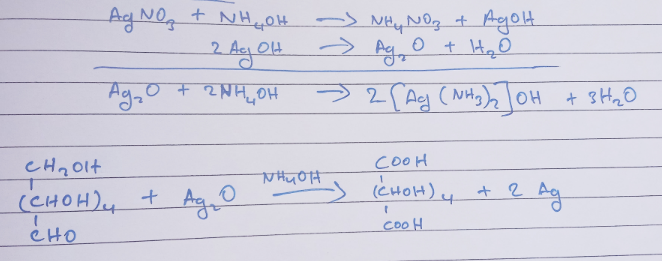 AgNO₃ + NH₄OH → NH₄NO₃ + AgOH
2 AgOH → Ag₂O + H₂O
Ag₂O + 2NH₄OH → 2[Ag(NH₃)₂]OH + 3H₂O
CH₂OH COOH
(CHOH)₄ + Ag₂O NH₄OH → (CHOH)₄ + 2 Ag
CHO COOH